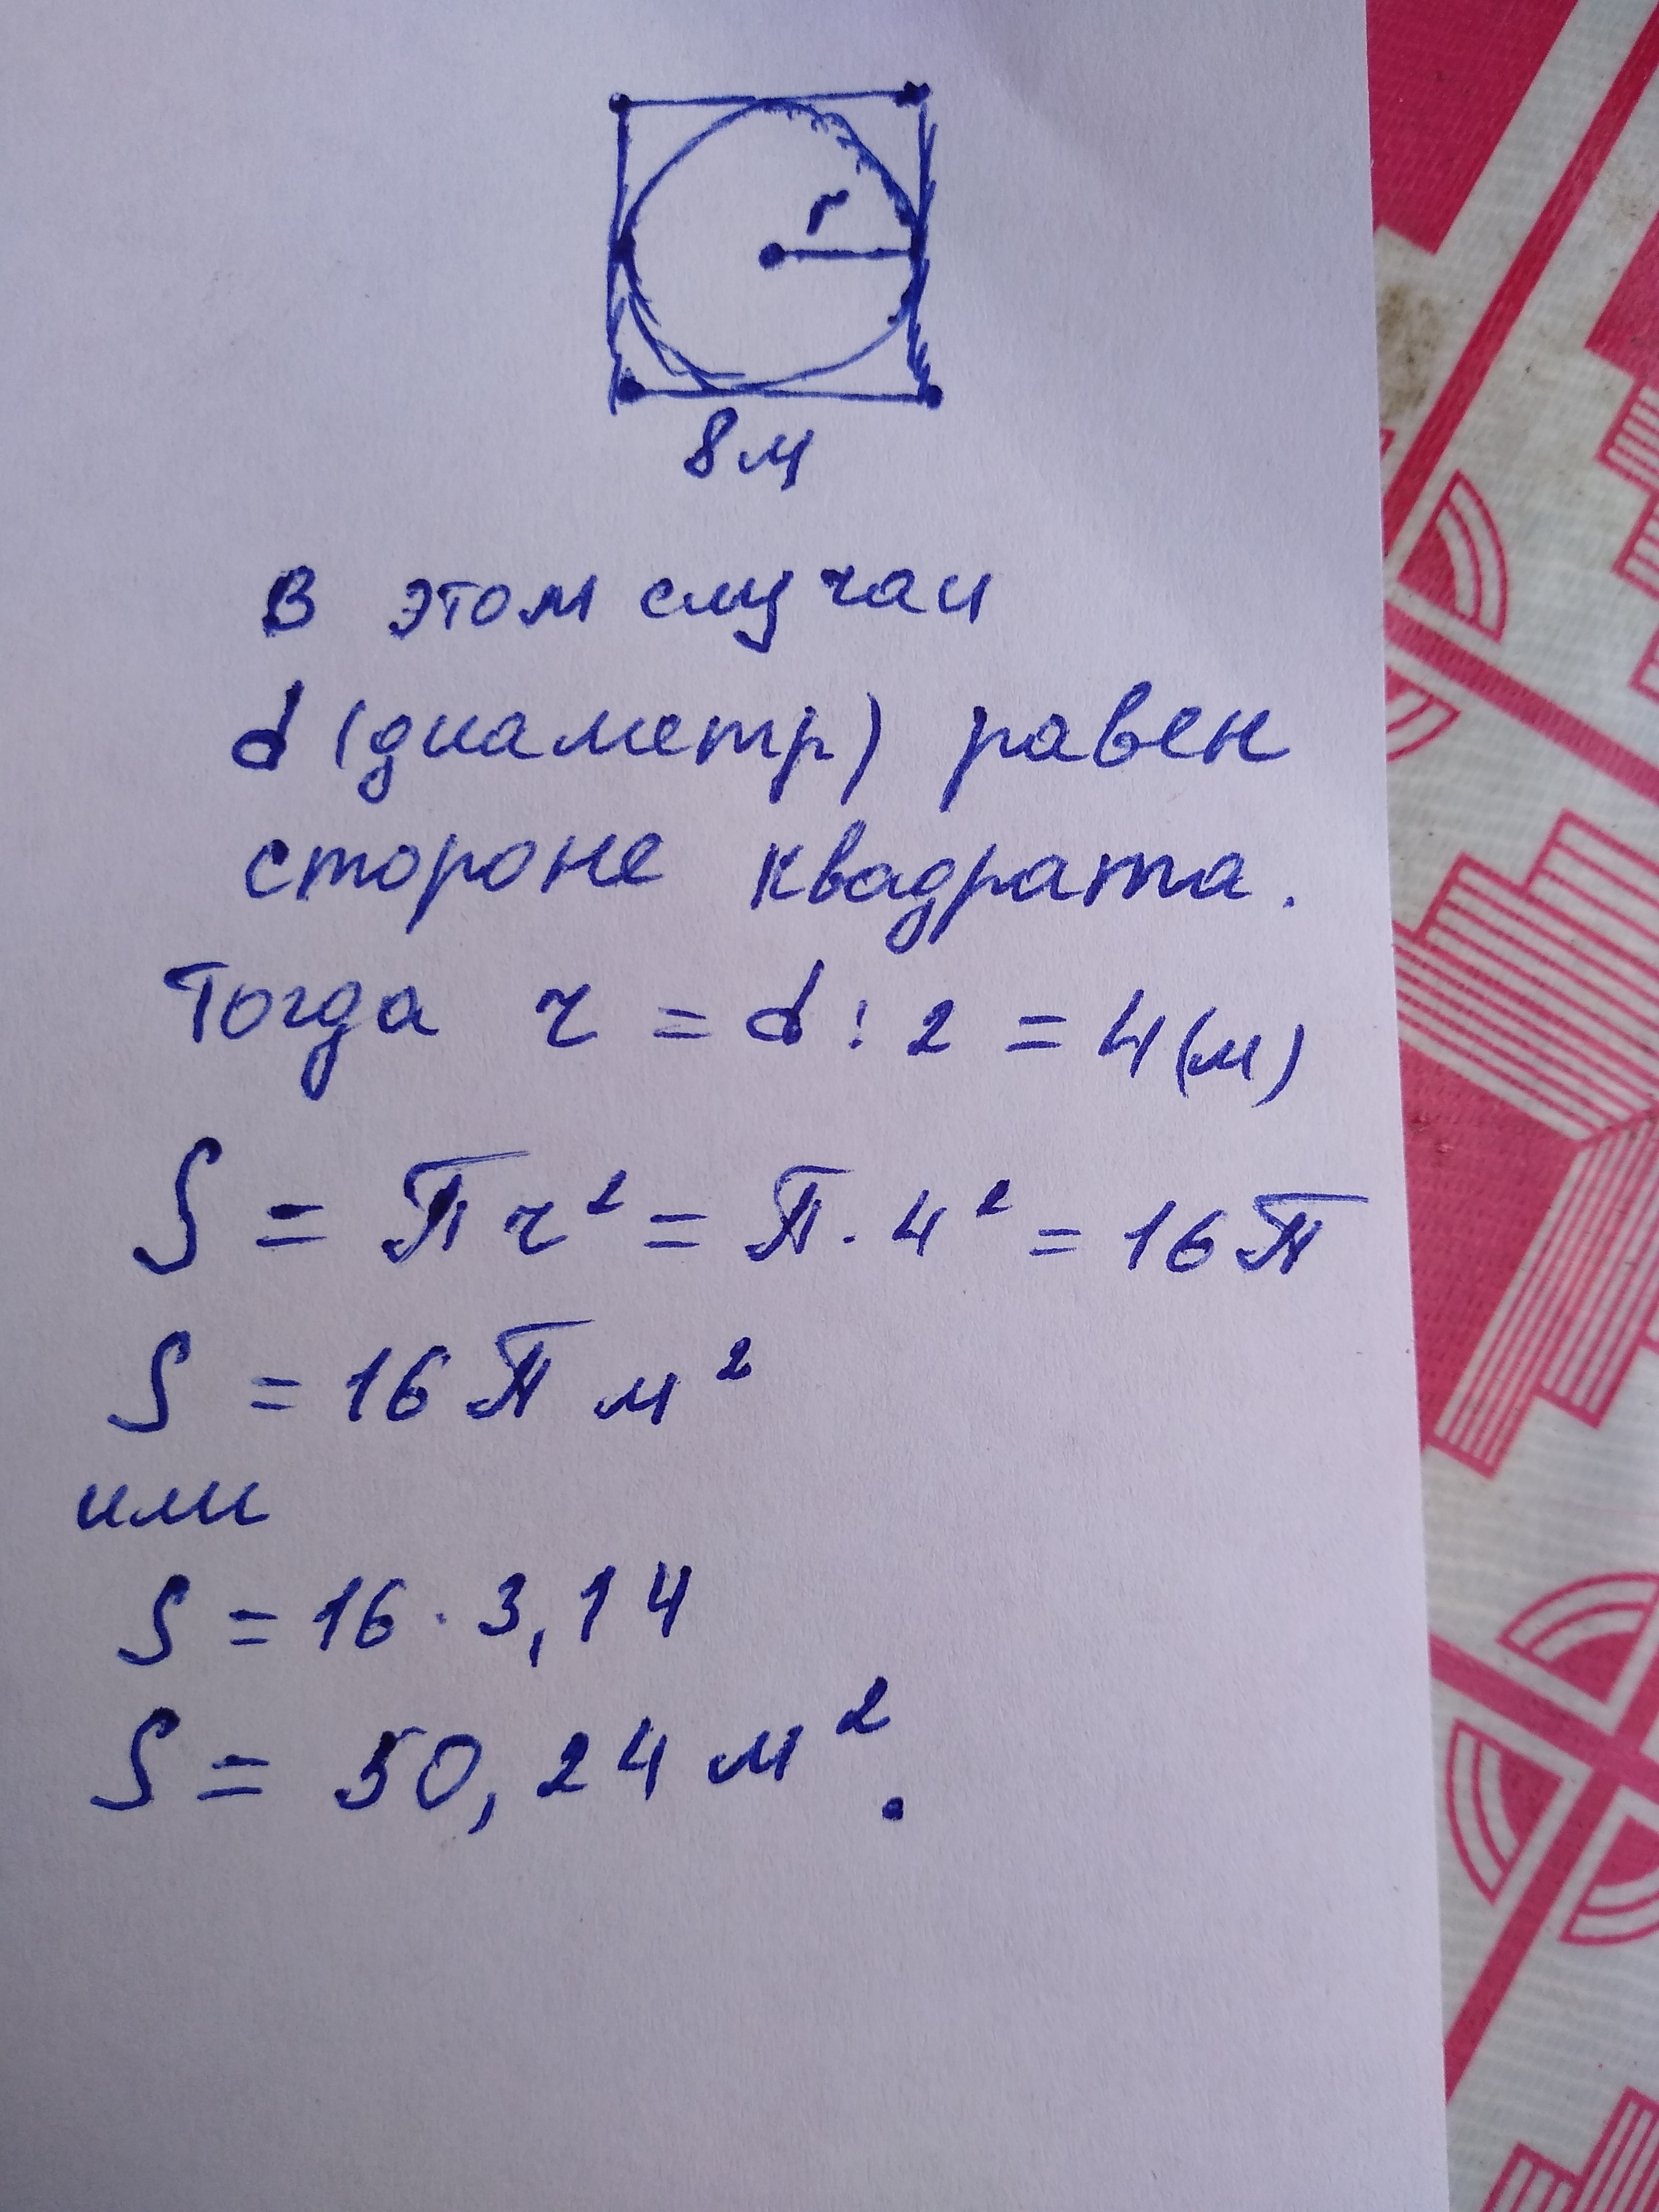 r
8 м
В этом случаи
d (диаметр) равен
стороне квадрата.
Тогда r = d : 2 = 4 (м)
S = π r² = π · 4² = 16 π
S = 16 π м²
или
S = 16 · 3,14
S = 50,24 м².